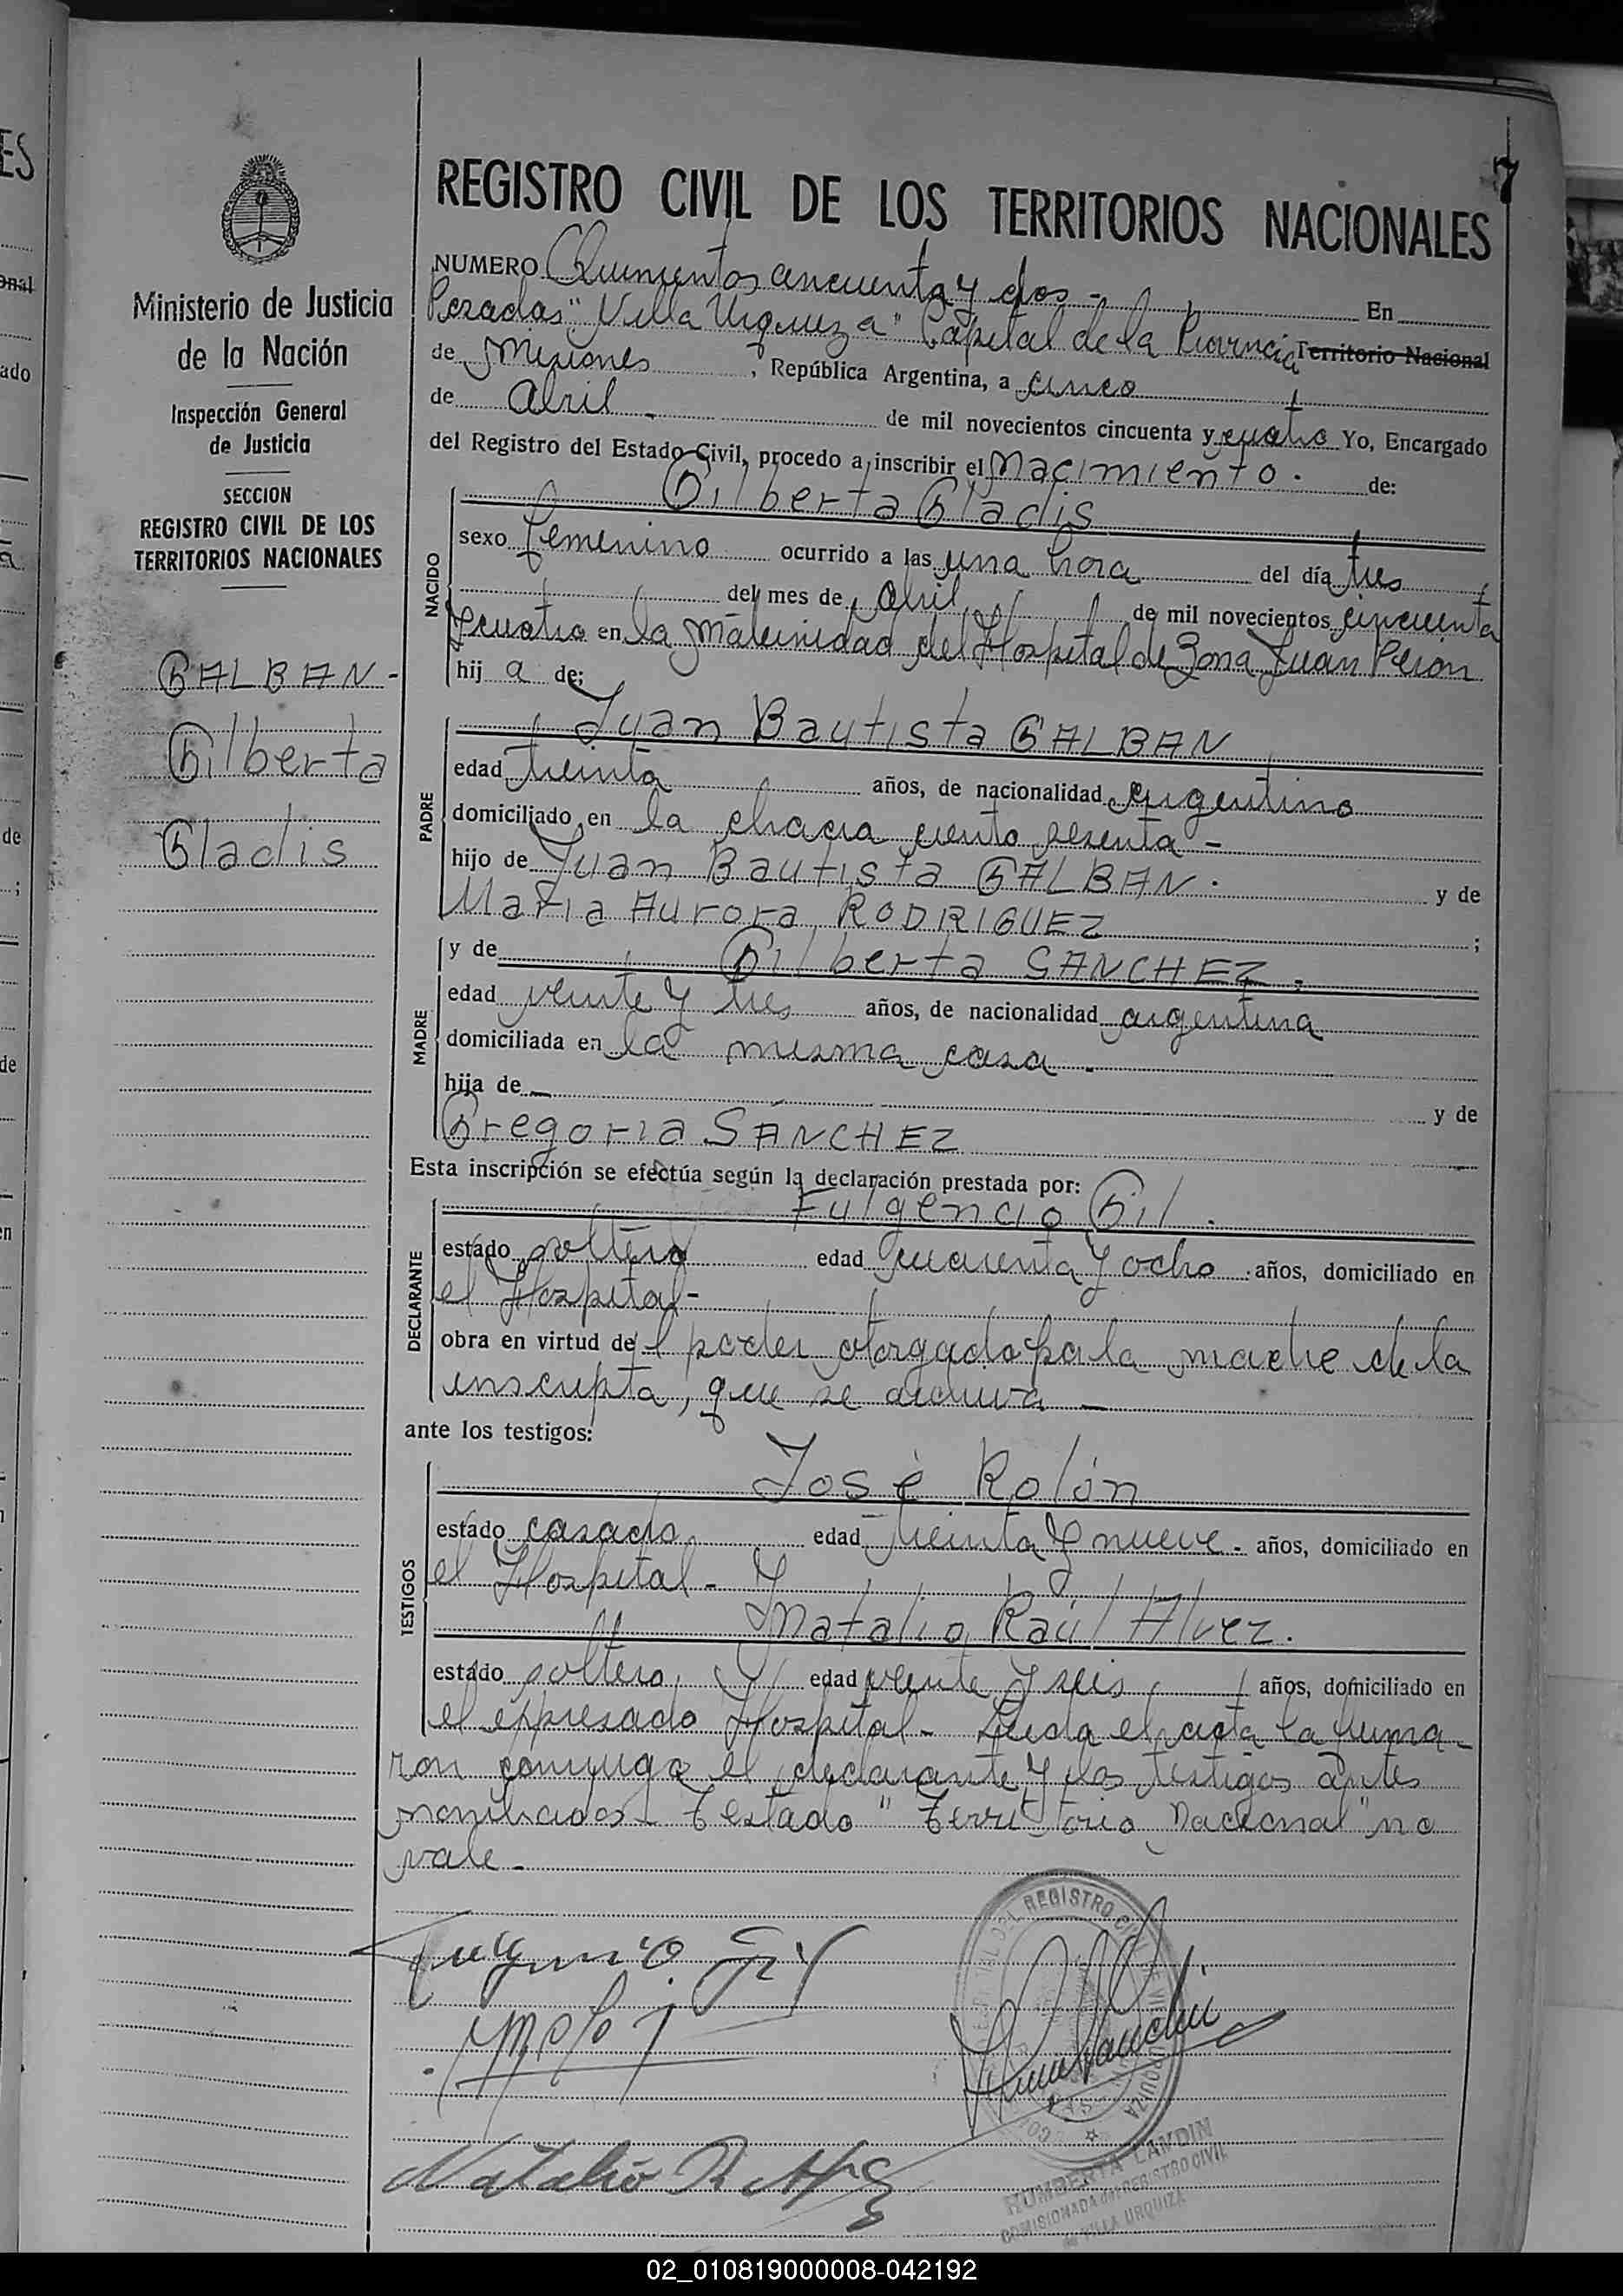 7
REGISTRO CIVIL DE LOS TERRITORIOS NACIONALES
Ministerio de Justicia
de la Nación
Inspección General
de Justicia
SECCION
REGISTRO CIVIL DE LOS
TERRITORIOS NACIONALES
GALBAN-
Gilberta
Gladis
NUMERO Quinientos cincuenta y dos - En
Posadas "Villa Urquiza" Capital de la Provincia Territorio Nacional
de Misiones, República Argentina, a cinco
de abril - de mil novecientos cincuenta y cuatro Yo, Encargado
del Registro del Estado Civil, procedo a inscribir el Nacimiento. de:
Gilberta Gladis
NACIDO
sexo femenino ocurrido a las una hora del día tres
del mes de abril de mil novecientos cincuenta
y cuatro en la Maternidad del Hospital de Zona Juan Peron
hij a de:
Juan Bautista GALBAN
PADRE
edad treinta años, de nacionalidad argentino
domiciliado en la chacra ciento sesenta -
hijo de Juan Bautista GALBAN. y de
Maria Aurora RODRIGUEZ ;
y de Gilberta SANCHEZ.
MADRE
edad veinte y tres años, de nacionalidad argentina
domiciliada en la misma casa -
hija de — y de
Gregoria SÁNCHEZ
Esta inscripción se efectúa según la declaración prestada por:
Fulgencio Gil.
DECLARANTE
estado soltero edad cuarenta y ocho años, domiciliado en
el Hospital-
obra en virtud del poder otorgado por la madre de la
inscripta, que se archiva —
ante los testigos:
José Rolón
TESTIGOS
estado casado edad treinta y nueve - años, domiciliado en
el Hospital - y
Natalio Raúl Alvez.
estado soltero, edad veinte y seis años, domiciliado en
el expresado Hospital - Leida el acta la firma-
ron conmigo el declarante y los testigos antes
nombrados - Testado "Territorio Nacional" no
vale -
REGISTRO CIVIL
URQUIZA
HUMBERTA LANDIN
COMISIONADA del REGISTRO CIVIL
de VILLA URQUIZA
02_010819000008-042192